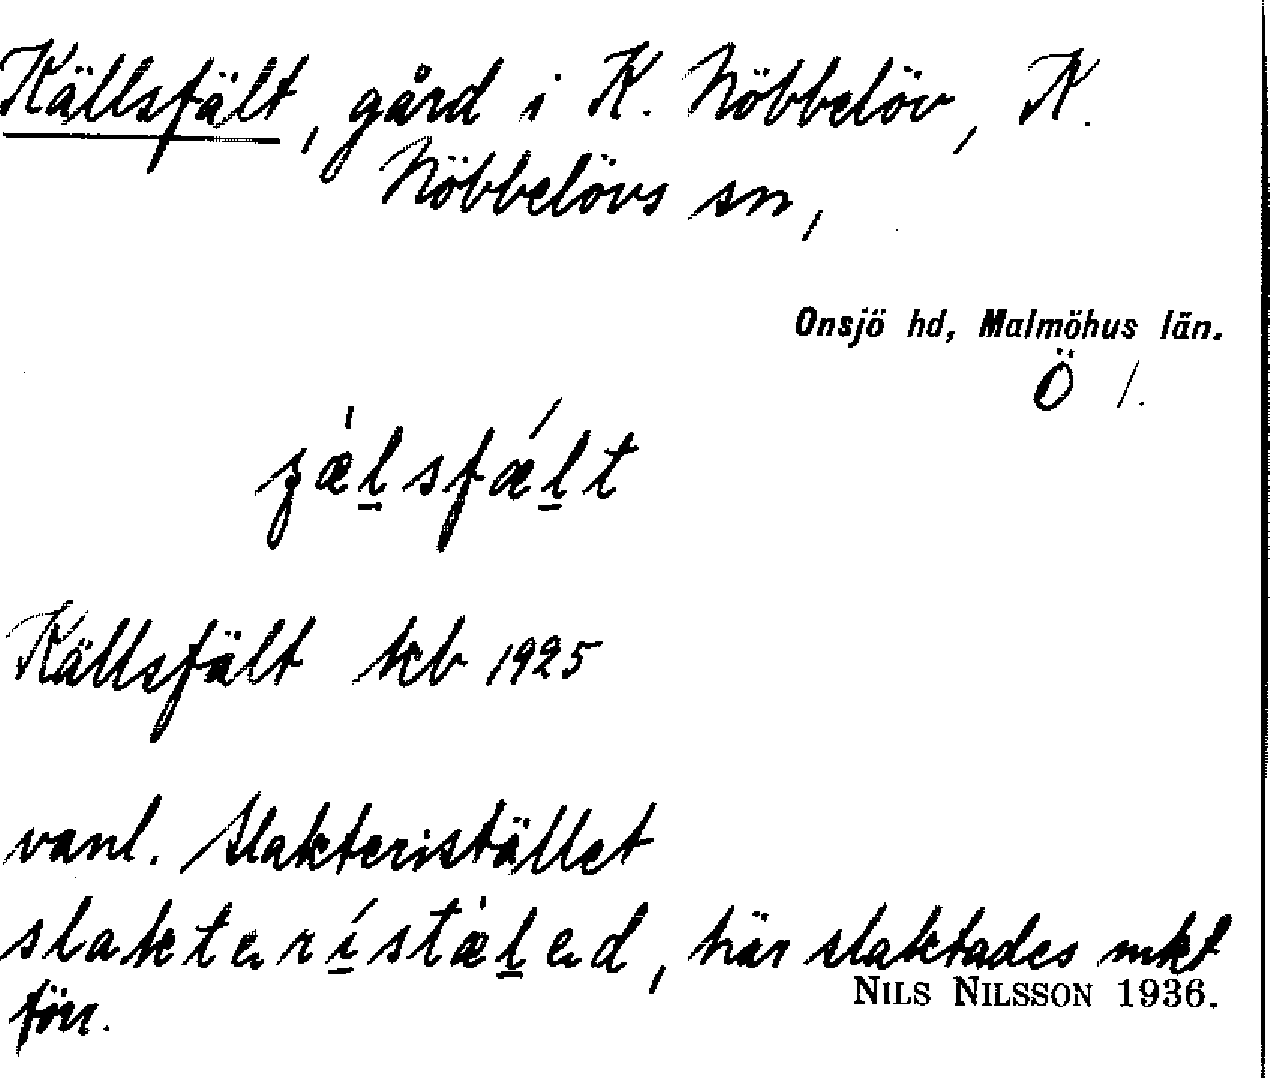 Källsfält, gård i K. Nöbbelöv, N.
Nöbbelövs sn,
Onsjö hd, Malmöhus län.
Ö 1.
Källsfält kb 1925
vanl. Slakteristället
här slaktades mkt
förr.
NILS NILSSON 1936.